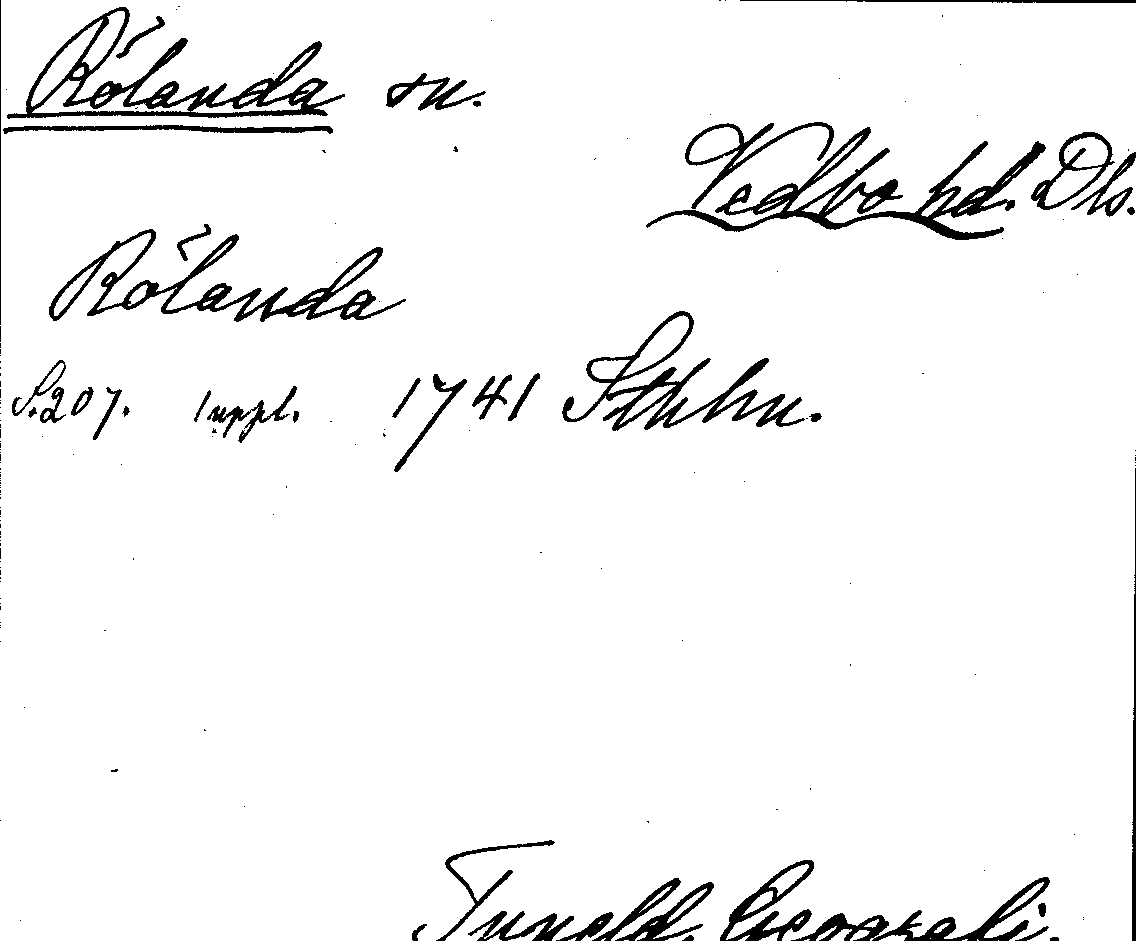 Rölanda sn.
Vedbo hd. Dls.
Rölanda
S. 207. suppl. 1741 Sthlm.
Tuneld, Geografi.